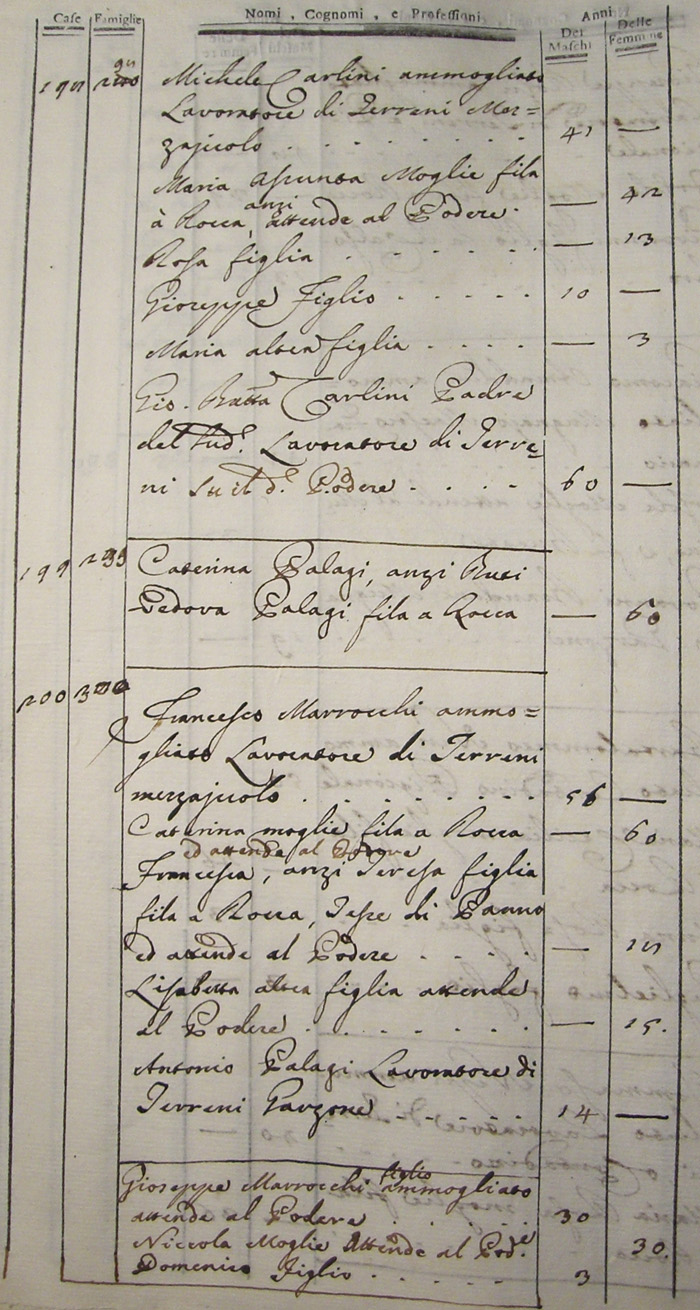 Case Famiglie Nomi, Cognomi, e Professioni Anni
Dei Maschi Delle Femmine
Michele Carlini ammogliato
Lavoratore di Terreni Mez=
zajuolo . . . . . . . . 41 —
Maria Assunta Moglie fila
à Rocca, anzi attende al Podere. — 42
Rosa figlia . . . . . — 13
Gioseppe Figlio . . . . . 10 —
Maria altra figlia . . . . — 3
Gio. Batta Carlini Padre
del Sud.º Lavoratore di Terre
ni su il d.º Podere . . . . 60 —
199 299 Caterina Palagi, anzi Buti
Vedova Palagi fila a Rocca — 60
200 300 Francesco Marrocchi ammo=
gliato Lavoratore di Terreni
mezzajuolo . . . . . . . 56 —
Caterina moglie fila a Rocca — 60
ed attende al Podere
Francesca, anzi Teresa figlia
fila a Rocca, Tesse di Panno
ed attende al Podere . . . . —
Lisabetta altra figlia attende
al Podere . . . . . . . — 15.
Antonio Palagi Lavoratore di
Terreni Garzone . . . . . 14 —
Gioseppe Marrocchi figlio ammogliato
attende al Podere . . . . . 30
Niccola Moglie Attende al Pod.e 30.
Domenico Figlio . . . . . 3